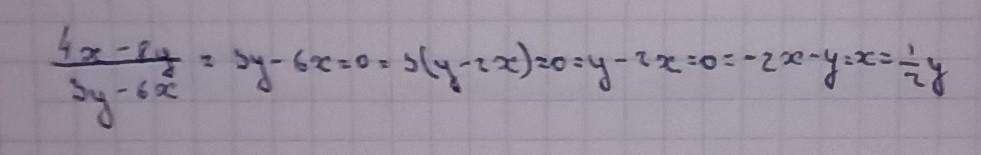 (4x - 2y)/(3y - 6x) = 3y - 6x = 0 = 3(y - 2x) = 0 = y - 2x = 0 = -2x - y = x = 1/2 y